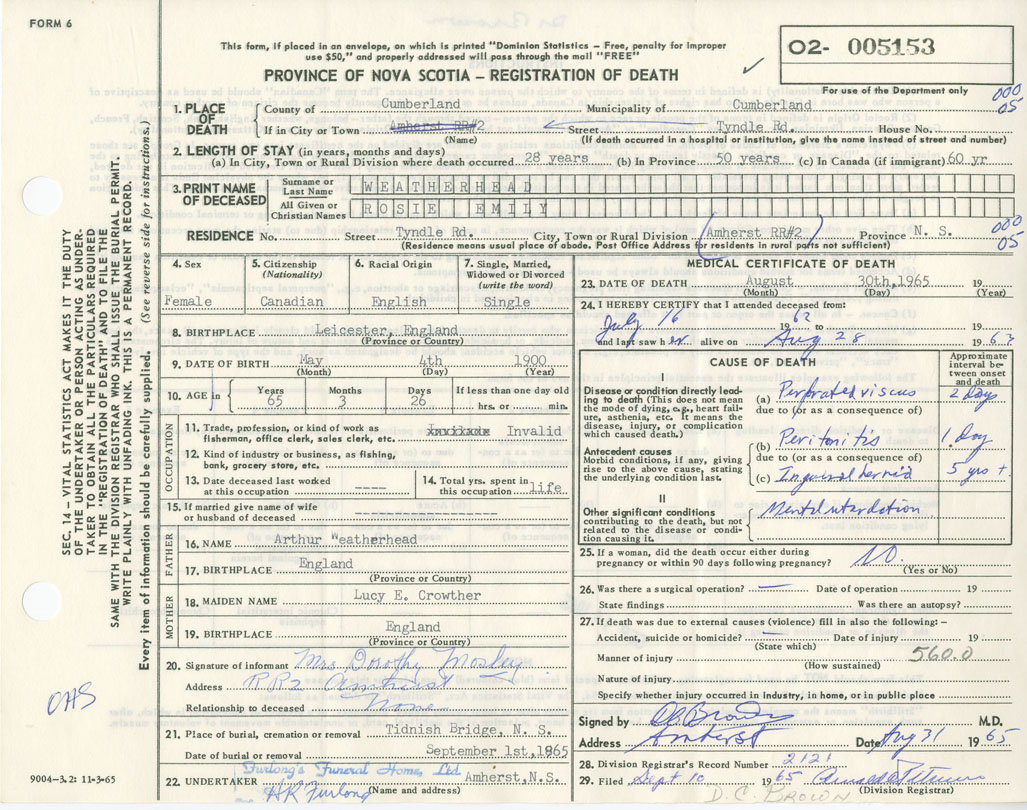 FORM 6
This form, if placed in an envelope, on which is printed "Dominion Statistics – Free, penalty for improper
use $50," and properly addressed will pass through the mail "FREE"
PROVINCE OF NOVA SCOTIA – REGISTRATION OF DEATH
02- 005153
For use of the Department only
000
05
SEC. 14 – VITAL STATISTICS ACT MAKES IT THE DUTY
OF THE UNDERTAKER OR PERSON ACTING AS UNDER-
TAKER TO OBTAIN ALL THE PARTICULARS REQUIRED
IN THE "REGISTRATION OF DEATH" AND TO FILE THE
SAME WITH THE DIVISION REGISTRAR WHO SHALL ISSUE THE BURIAL PERMIT.
WRITE PLAINLY WITH UNFADING INK. THIS IS A PERMANENT RECORD.
Every item of information should be carefully supplied. (See reverse side for instructions.)
1. PLACE OF DEATH
County of Cumberland Municipality of Cumberland
If in City or Town Amherst RR#2 Street Tyndle Rd. House No.
(Name) (If death occurred in a hospital or institution, give the name instead of street and number)
2. LENGTH OF STAY (in years, months and days)
(a) In City, Town or Rural Division where death occurred 28 years (b) In Province 50 years (c) In Canada (if immigrant) 60 yr
3. PRINT NAME OF DECEASED
Surname or Last Name WEATHERHEAD
All Given or Christian Names ROSIE EMILY
RESIDENCE No. Street Tyndle Rd. City, Town or Rural Division (Amherst RR#2) Province N. S.
(Residence means usual place of abode. Post Office Address for residents in rural parts not sufficient)
000
05
4. Sex
Female
5. Citizenship
(Nationality)
Canadian
6. Racial Origin
English
7. Single, Married,
Widowed or Divorced
(write the word)
Single
8. BIRTHPLACE Leicester, England
(Province or Country)
9. DATE OF BIRTH May 4th 1900
(Month) (Day) (Year)
10. AGE in Years 65 Months 3 Days 26 If less than one day old
hrs. or min.
OCCUPATION
11. Trade, profession, or kind of work as
fisherman, office clerk, sales clerk, etc. Invalid
12. Kind of industry or business, as fishing,
bank, grocery store, etc.
13. Date deceased last worked
at this occupation ----
14. Total yrs. spent in
this occupation life
15. If married give name of wife
or husband of deceased
FATHER
16. NAME Arthur Weatherhead
17. BIRTHPLACE England
(Province or Country)
MOTHER
18. MAIDEN NAME Lucy E. Crowther
19. BIRTHPLACE England
(Province or Country)
20. Signature of informant Mrs Dorothy Mosley
Address RR2 Amherst
Relationship to deceased None
21. Place of burial, cremation or removal Tidnish Bridge, N. S.
Date of burial or removal September 1st, 1965
22. UNDERTAKER Furlong's Funeral Home, Ltd. Amherst, N.S.
HK Furlong (Name and address)
OHS
9004-3.2: 11-3-65
MEDICAL CERTIFICATE OF DEATH
23. DATE OF DEATH August 30th, 1965 19
(Month) (Day) (Year)
24. I HEREBY CERTIFY that I attended deceased from:
July 16 1962 to
and last saw her alive on Aug 28 196
CAUSE OF DEATH
Approximate
interval be-
tween onset
and death
I
Disease or condition directly lead-
ing to death (This does not mean
the mode of dying, e.g., heart fail-
ure, asthenia, etc. It means the
disease, injury, or complication
which caused death.)
(a) Perforated viscus 2 days
due to (or as a consequence of)
(b) Peritonitis 1 day
Antecedent causes
Morbid conditions, if any, giving
rise to the above cause, stating
the underlying condition last.
due to (or as a consequence of)
(c) Inguinal hernia 5 yrs +
II
Other significant conditions
contributing to the death, but not
related to the disease or condi-
tion causing it.
Mental retardation
25. If a woman, did the death occur either during
pregnancy or within 90 days following pregnancy? No.
(Yes or No)
26. Was there a surgical operation? — Date of operation 19
State findings Was there an autopsy?
27. If death was due to external causes (violence) fill in also the following: –
Accident, suicide or homicide? — Date of injury 19
(State which)
Manner of injury 560.0
(How sustained)
Nature of injury
Specify whether injury occurred in industry, in home, or in public place
Signed by DC Brown M.D.
Address Amherst Date Aug 31 1965
28. Division Registrar's Record Number 2121
29. Filed Sept 10 1965
(Division Registrar)
D. C. BROWN